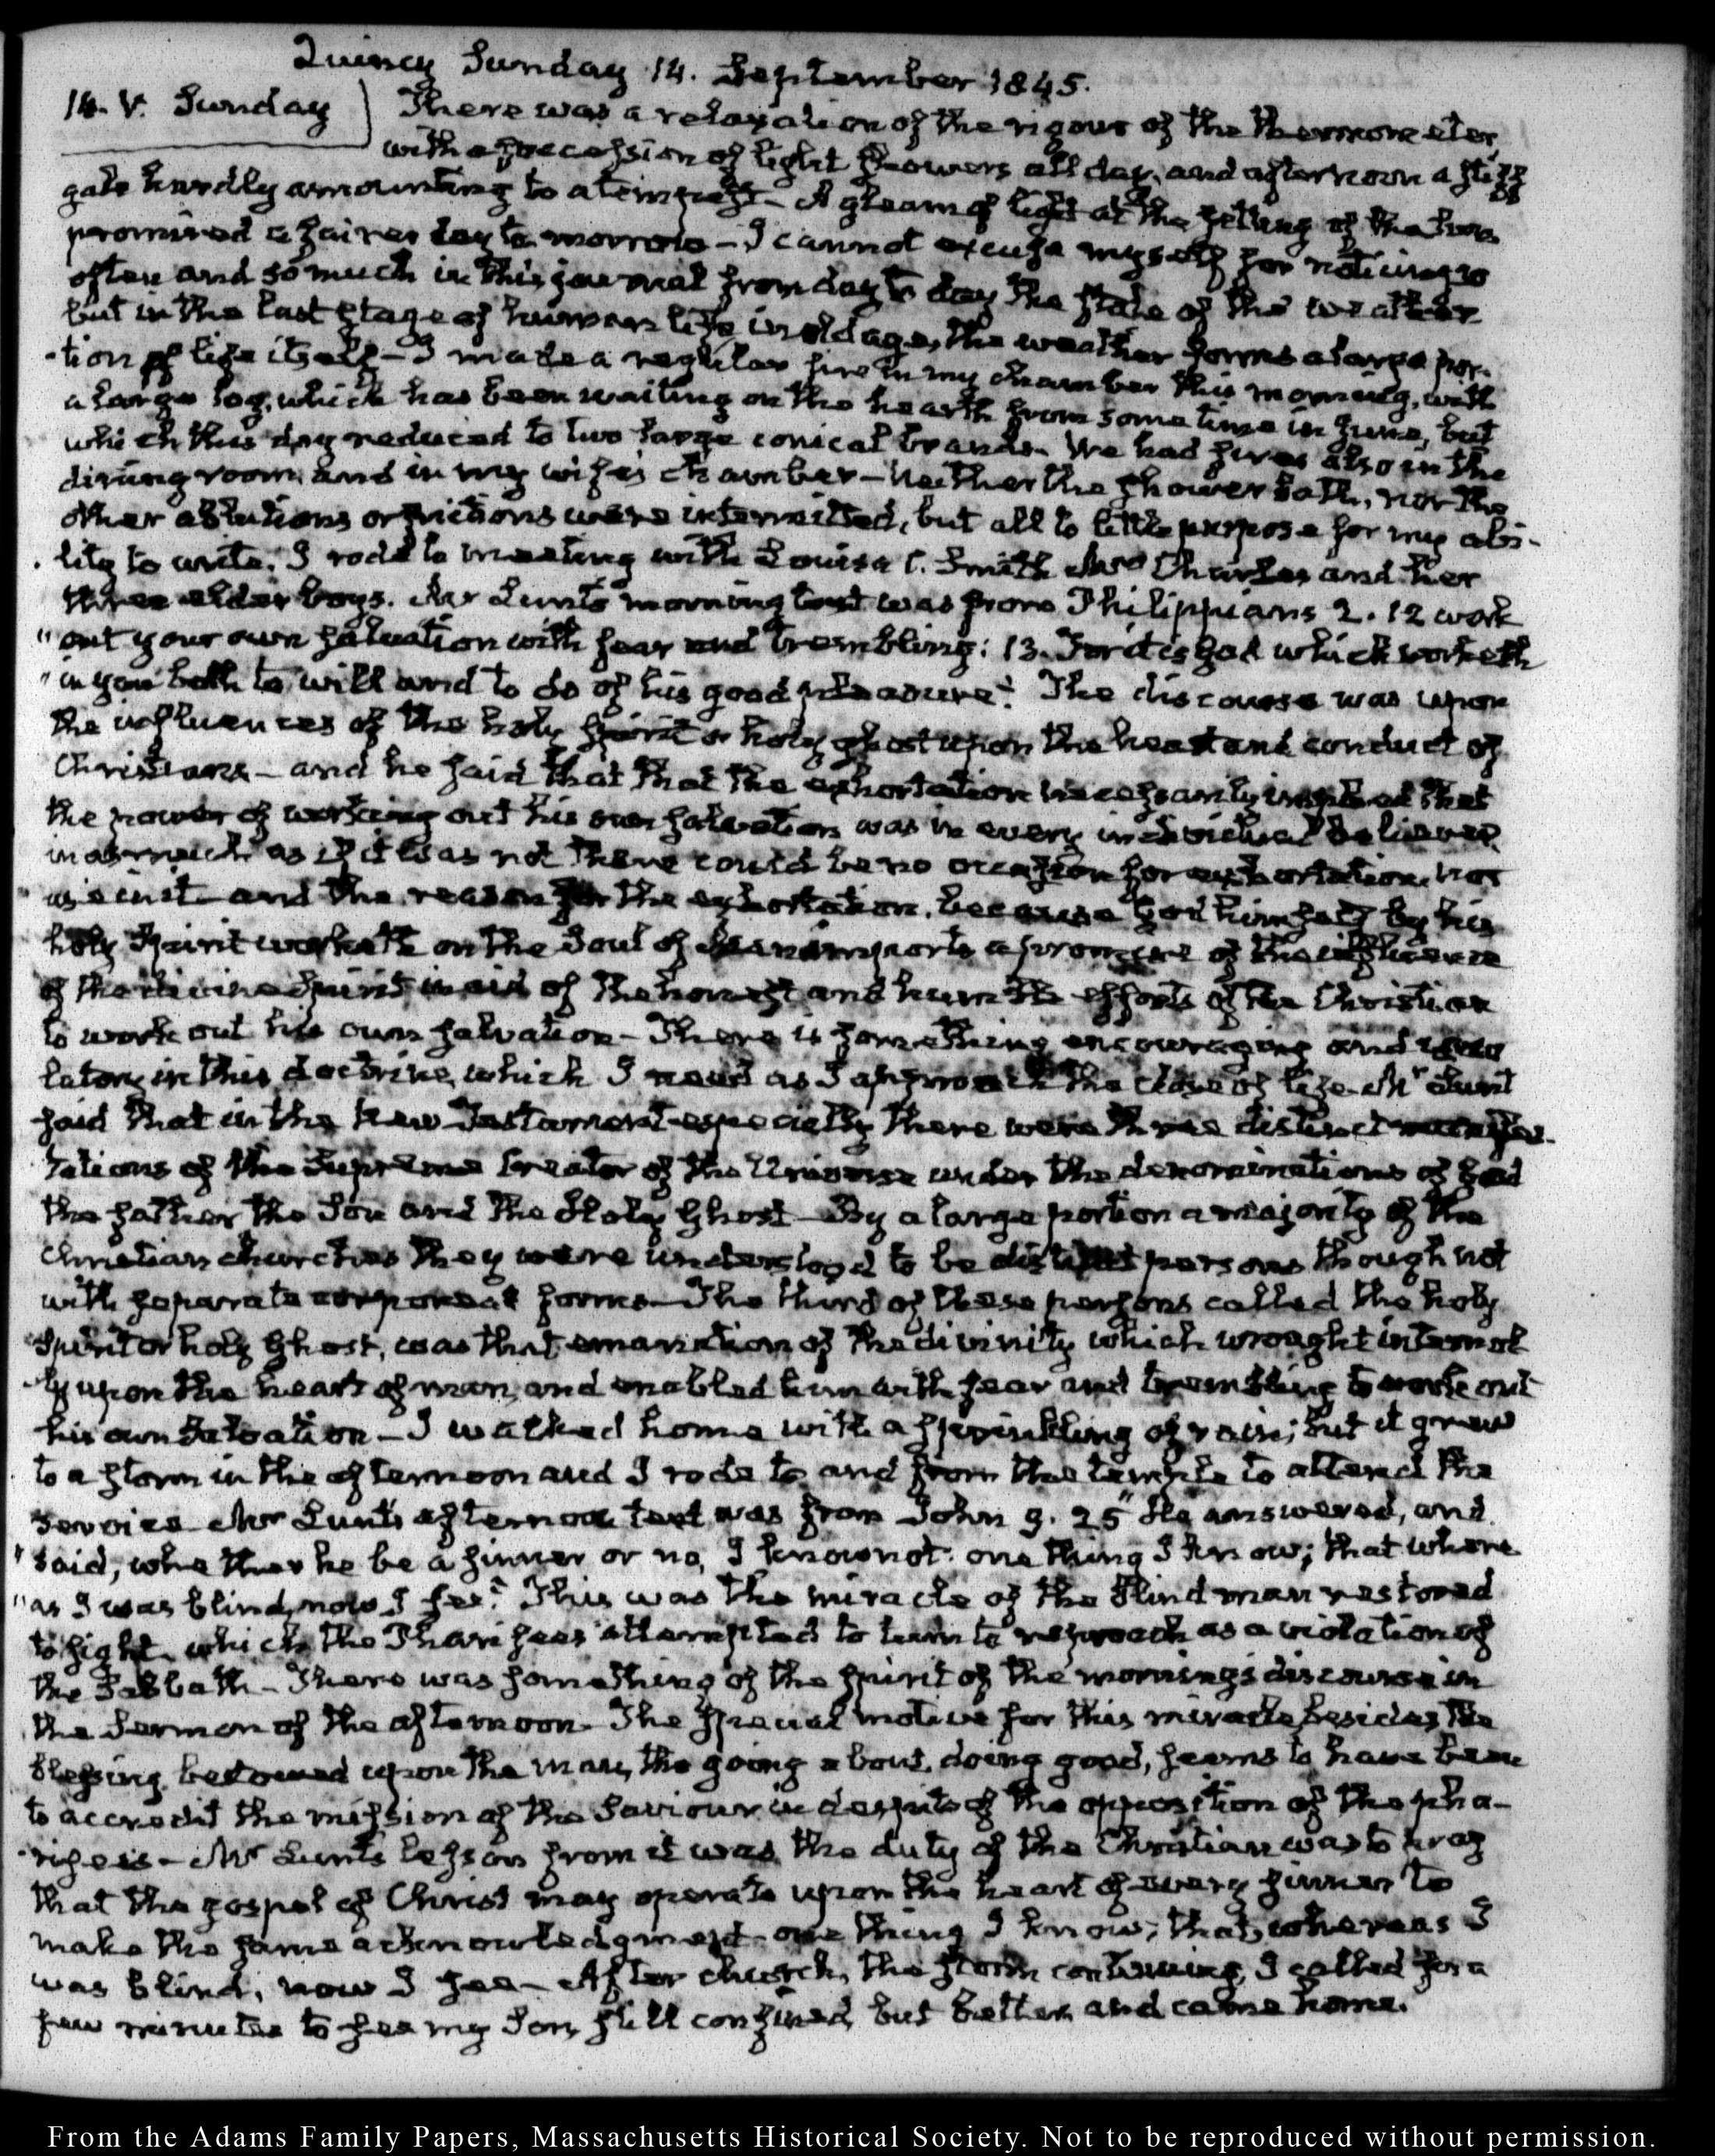 Quincy Sunday 14. September 1845.
14. V. Sunday
There was a relaxation of the rigour of the thermometer,
with a succession of light showers all day, and afternoon a stiff
gale hardly amounting to a tempest – A gleam of light at the setting of the Sun
promised a fairer day to morrow – I cannot excuse myself for noticing so
often and so much in this journal from day to day the state of the weather
but in the last stage of human life in old age, the weather forms a large por-
-tion of life itself – I made a regular fire in my chamber this morning, with
a large log, which has been waiting on the hearth from some time in June, but
which this day reduced to two large conical brands. We had fires also in the
dining room, and in my wife's chamber – Neither the shower bath, nor the
other ablutions or frictions were intermitted, but all to little purpose for my abi-
lity to write. I rode to meeting with Louisa C. Smith Mrs Charles and her
three elder boys. Mr Lunt's morning text was from Philippians 2. 12 work
"out your own salvation with fear and trembling: 13. For it is God which worketh
"in you both to will and to do of his good pleasure." The discourse was upon
the influences of the holy Spirit or holy ghost upon the heart and conduct of
Christians – and he said that that the exhortation necessarily implied that
the power of working out his own salvation was in every individual believer,
in as much as if it was not there could be no occasion for exhortation, nor
and the reason for the exhortation, because God himself by his
holy Spirit worketh on the Soul of Man imports a promise of the influence
of the divine Spirit in aid of the honest and humble efforts of the Christian
to work out his own salvation – There is something encouraging and conso
latory in this doctrine, which I need as I approach the close of life – Mr Lunt
said that in the New Testament especially there were three distinct manifes-
tations of the Supreme Creator of the Universe under the denominations of God
the father the Son and the Holy Ghost – By a large portion a majority of the
Christian churches they were understood to be distinct persons though not
with separate corporeal forms – The third of these persons called the holy
Spirit or holy Ghost, was that emanation of the divinity which wrought internal
ly upon the heart of man, and enabled him with fear and trembling to work out
his own Salvation – I walked home with a sprinkling of rain; but it grew
to a storm in the afternoon and I rode to and from the temple to attend the
service – Mr Lunt's afternoon text was from John 9. 25 "He answered, and
"said, whether he be a sinner or no, I know not: one thing I know; that where
"as I was blind, now I see." This was the miracle of the blind man restored
to sight, which the Pharisees attempted to turn to reproach as a violation of
the Sabbath – There was something of the spirit of the morning's discourse in
the Sermon of the afternoon. The special motive for this miracle, besides the
blessing bestowed upon the man, the going about, doing good, seems to have been
to accredit the mission of the Saviour in despite of the opposition of the pha-
-risees – Mr Lunt's lesson from it was, the duty of the Christian was to pray
that the gospel of Christ may operate upon the heart of every sinner to
make the same acknowledgment – one thing I know; that, whereas I
was blind, now I see – After church, the storm continuing, I called for a
few minutes to see my Son, still confined, but better, and came home.
From the Adams Family Papers, Massachusetts Historical Society. Not to be reproduced without permission.